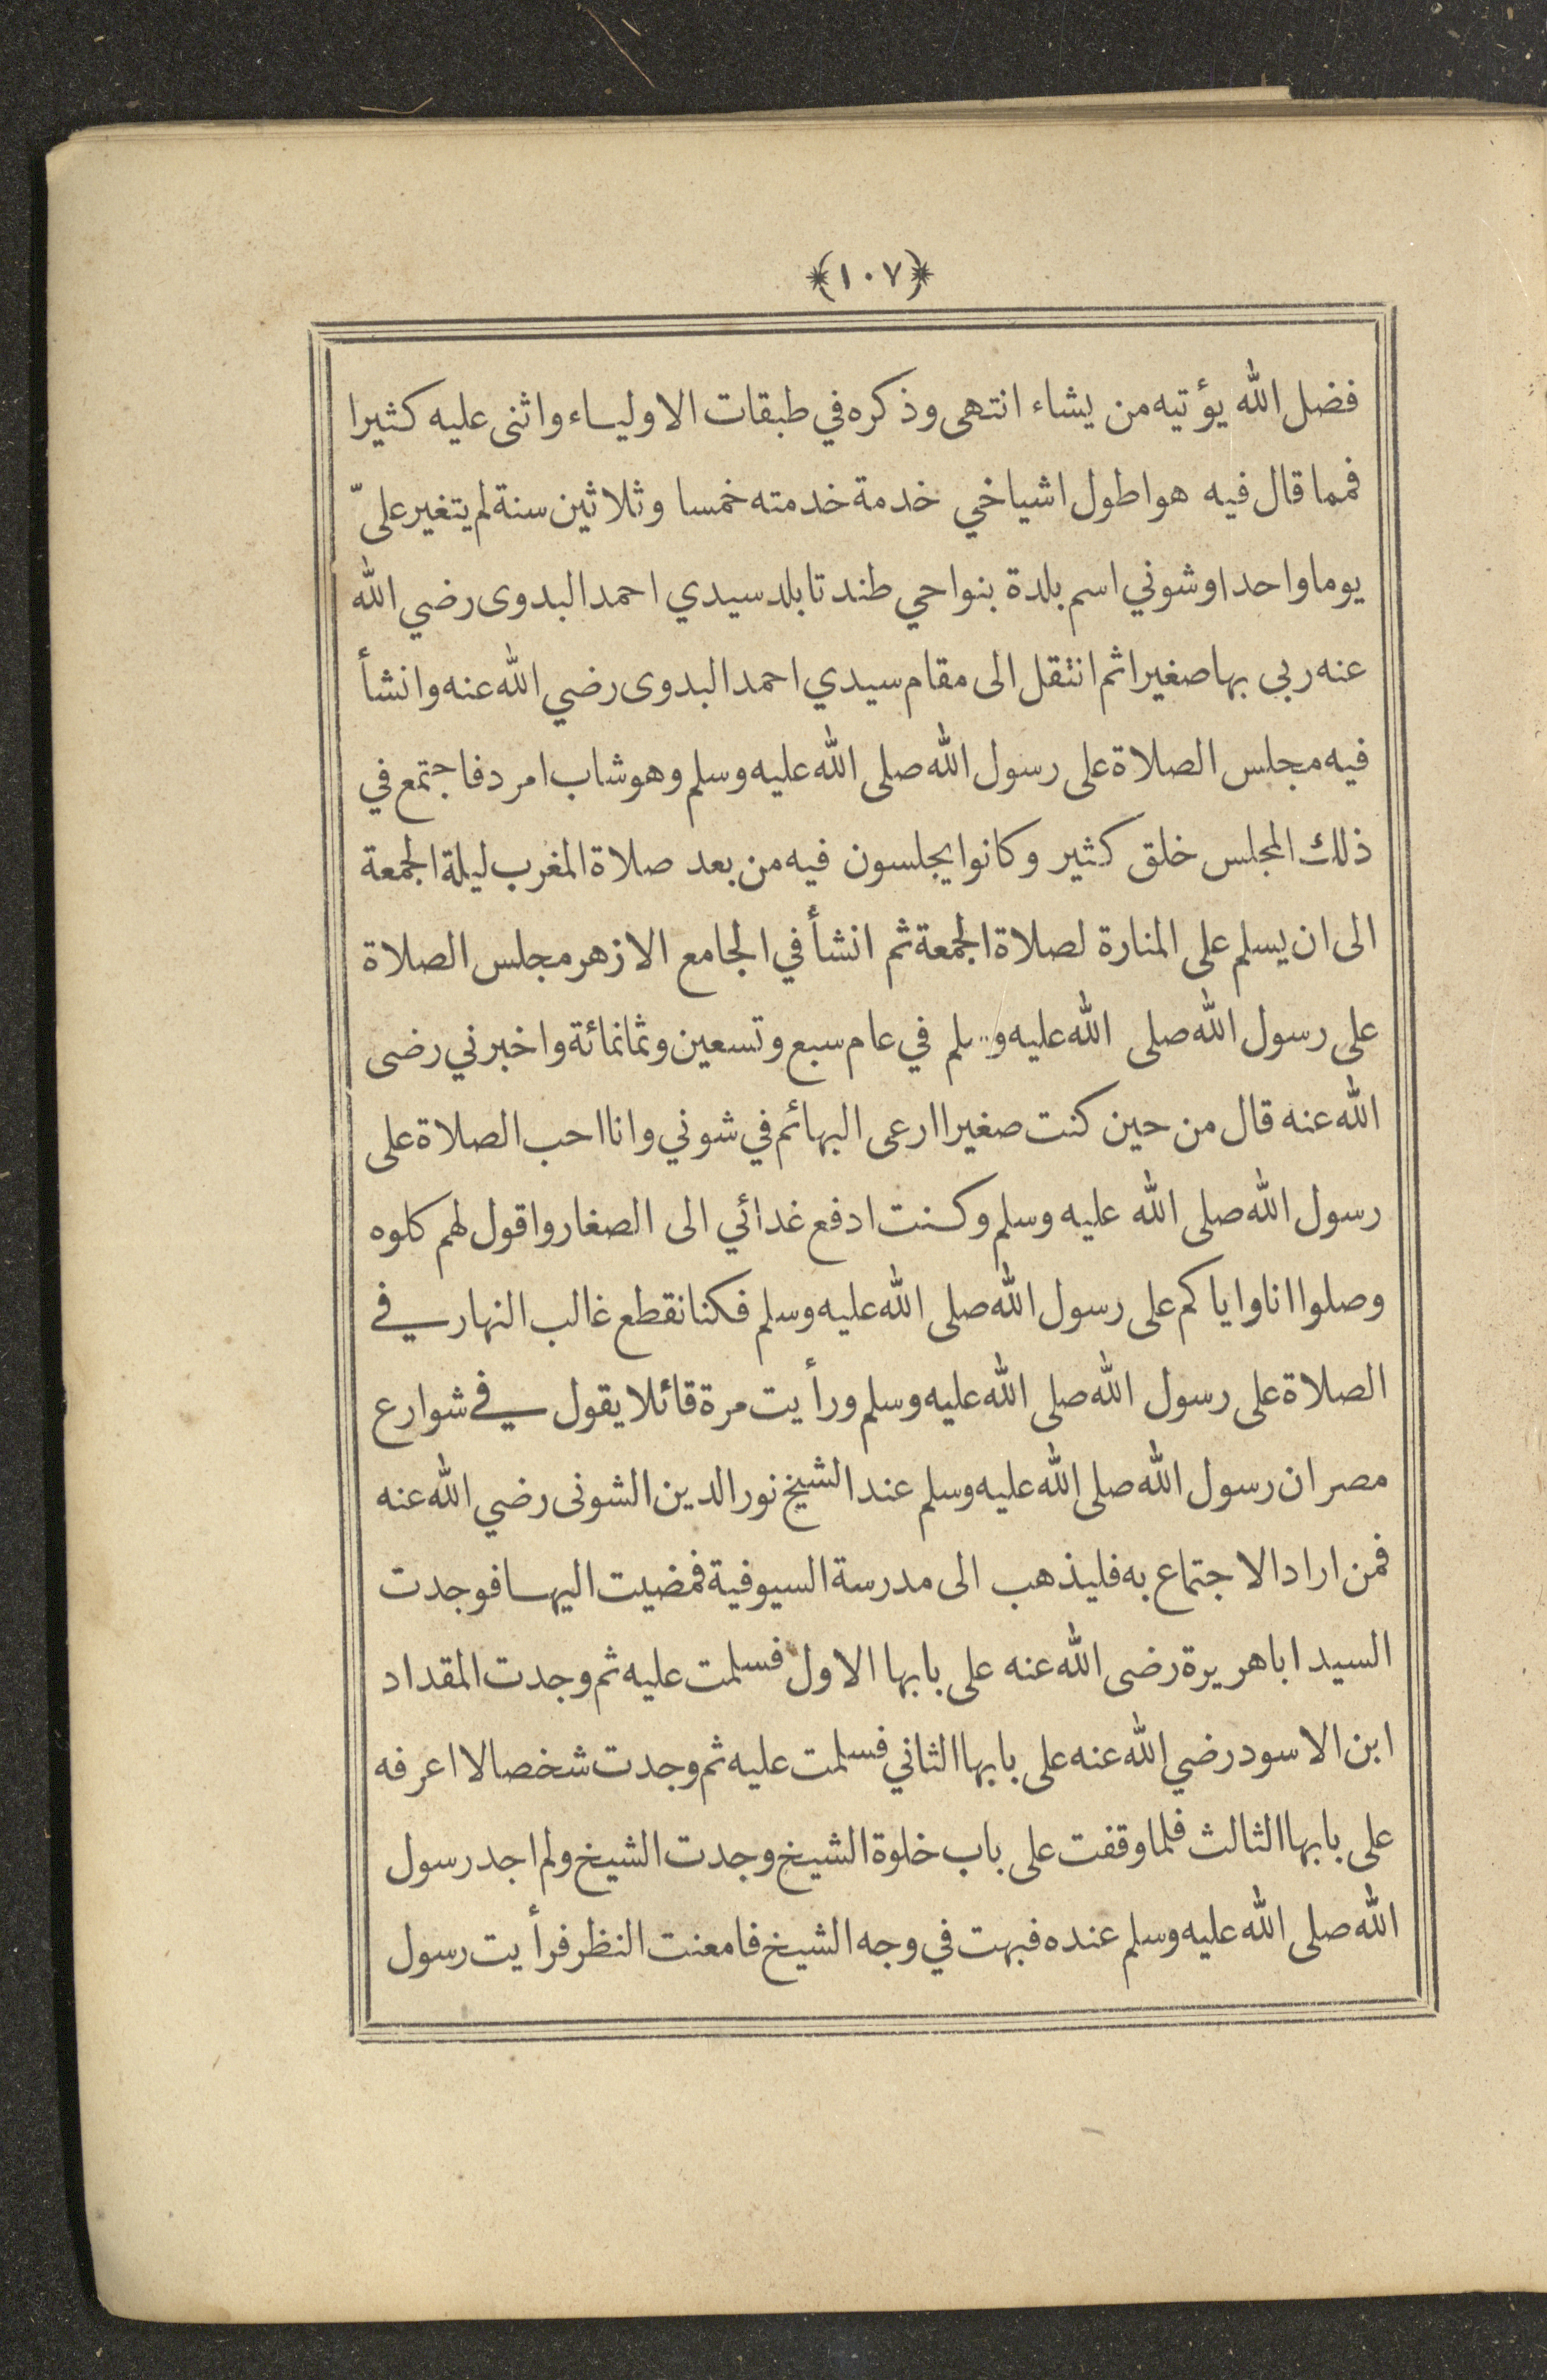 ﴿١٠٧﴾
فضل الله يؤتيه من يشاء انتهى وذكره في طبقات الاولياء واثنى عليه كثيرا
فمما قال فيه هو اطول اشياخي خدمة خدمته خمسا وثلاثين سنة لم يتغير علىّ
يوما واحدا وشوني اسم بلدة بنواحي طندتا بلد سيدي احمد البدوى رضي الله
عنه ربي بها صغيرا ثم انتقل الى مقام سيدي احمد البدوى رضي الله عنه وانشأ
فيه مجلس الصلاة على رسول الله صلى الله عليه وسلم وهو شاب امرد فاجتمع في
ذلك المجلس خلق كثير وكانوا يجلسون فيه من بعد صلاة المغرب ليلة الجمعة
الى ان يسلم على المنارة لصلاة الجمعة ثم انشأ في الجامع الازهر مجلس الصلاة
على رسول الله صلى الله عليه وسلم في عام سبع وتسعين وثمانمائة واخبرني رضى
الله عنه قال من حين كنت صغيرا ارعى البهائم في شوني وانا احب الصلاة على
رسول الله صلى الله عليه وسلم وكنت ادفع غدائي الى الصغار واقول لهم كلوه
وصلوا انا واياكم على رسول الله صلى الله عليه وسلم فكنا نقطع غالب النهار في
الصلاة على رسول الله صلى الله عليه وسلم ورأيت مرة قائلا يقول في شوارع
مصر ان رسول الله صلى الله عليه وسلم عند الشيخ نور الدين الشونى رضي الله عنه
فمن اراد الاجتماع به فليذهب الى مدرسة السيوفية فمضيت اليها فوجدت
السيد ابا هريرة رضى الله عنه على بابها الاول فسلمت عليه ثم وجدت المقداد
ابن الاسود رضي الله عنه على بابها الثاني فسلمت عليه ثم وجدت شخصا لا اعرفه
على بابها الثالث فلما وقفت على باب خلوة الشيخ وجدت الشيخ ولم اجد رسول
الله صلى الله عليه وسلم عنده فبهت في وجه الشيخ فامعنت النظر فرأيت رسول